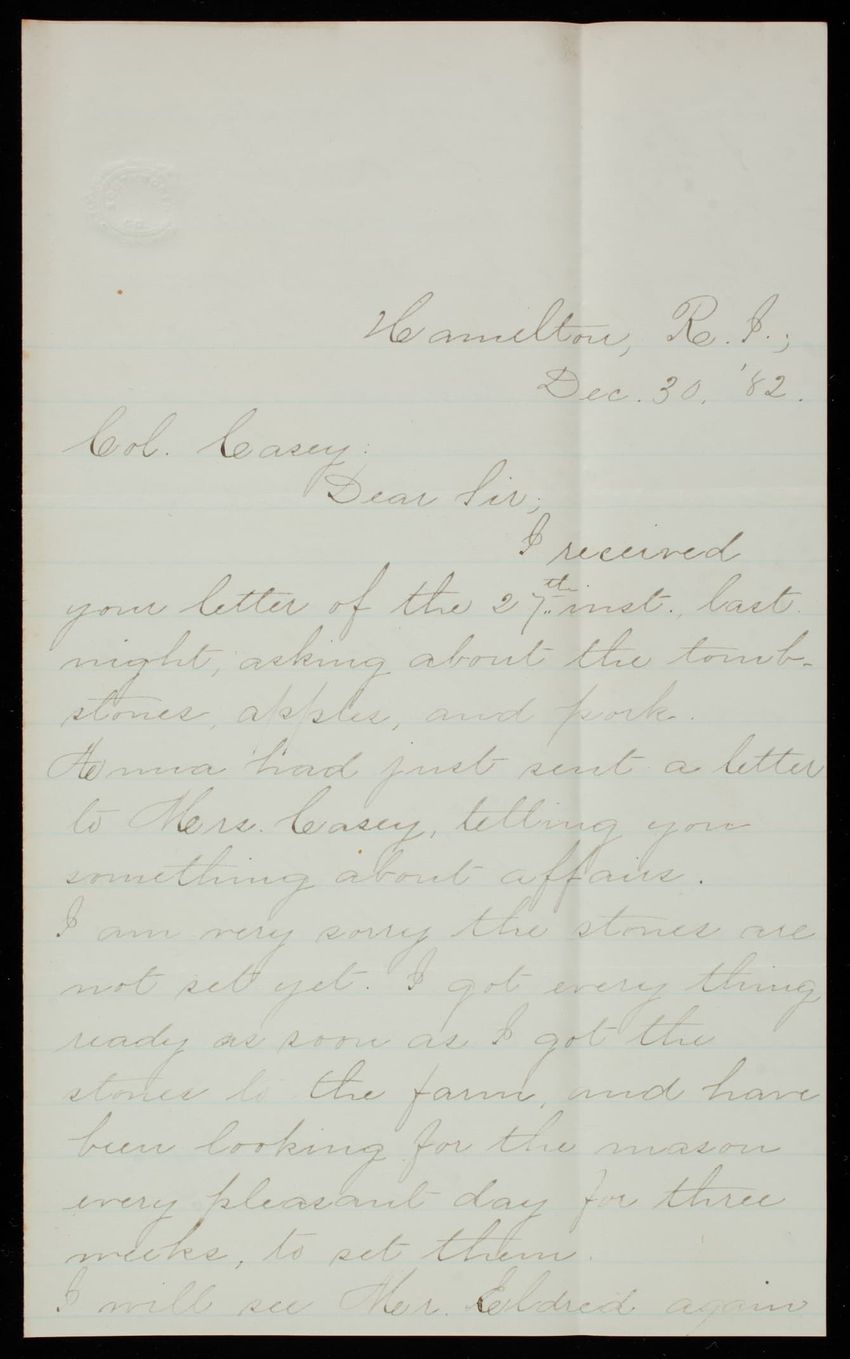 Hamelton, R. I.;
Dec. 30, '82.
Col. Casey:
Dear Sir;
I received
your letter of the 27th inst., last
night, asking about the tomb-
stones, apples, and pork.
Anna had just sent a letter
to Mrs. Casey, telling you
something about affairs.
I am very sorry the stones are
not set yet. I got every thing
ready as soon as I got the
stones to the farm, and have
been looking for the mason
every pleasant day for three
weeks, to set them.
I will see Mr. Eldred again